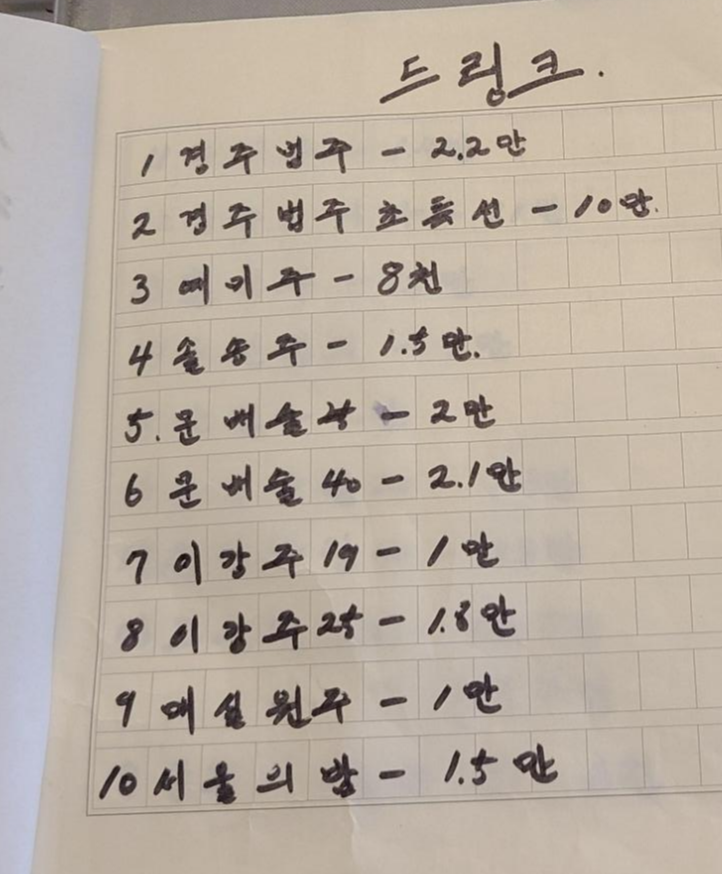 드링크.
1 경주법주 - 2.2만
2 경주법주초특선 - 10만.
3 예이주 - 8천
4 솔송주 - 1.5만.
5. 문배술 - 2만
6 문배술 40 - 2.1만
7 이강주 19 - 1만
8 이강주 25 - 1.8만
9 매실원주 - 1만
10 서울의밤 - 1.5만